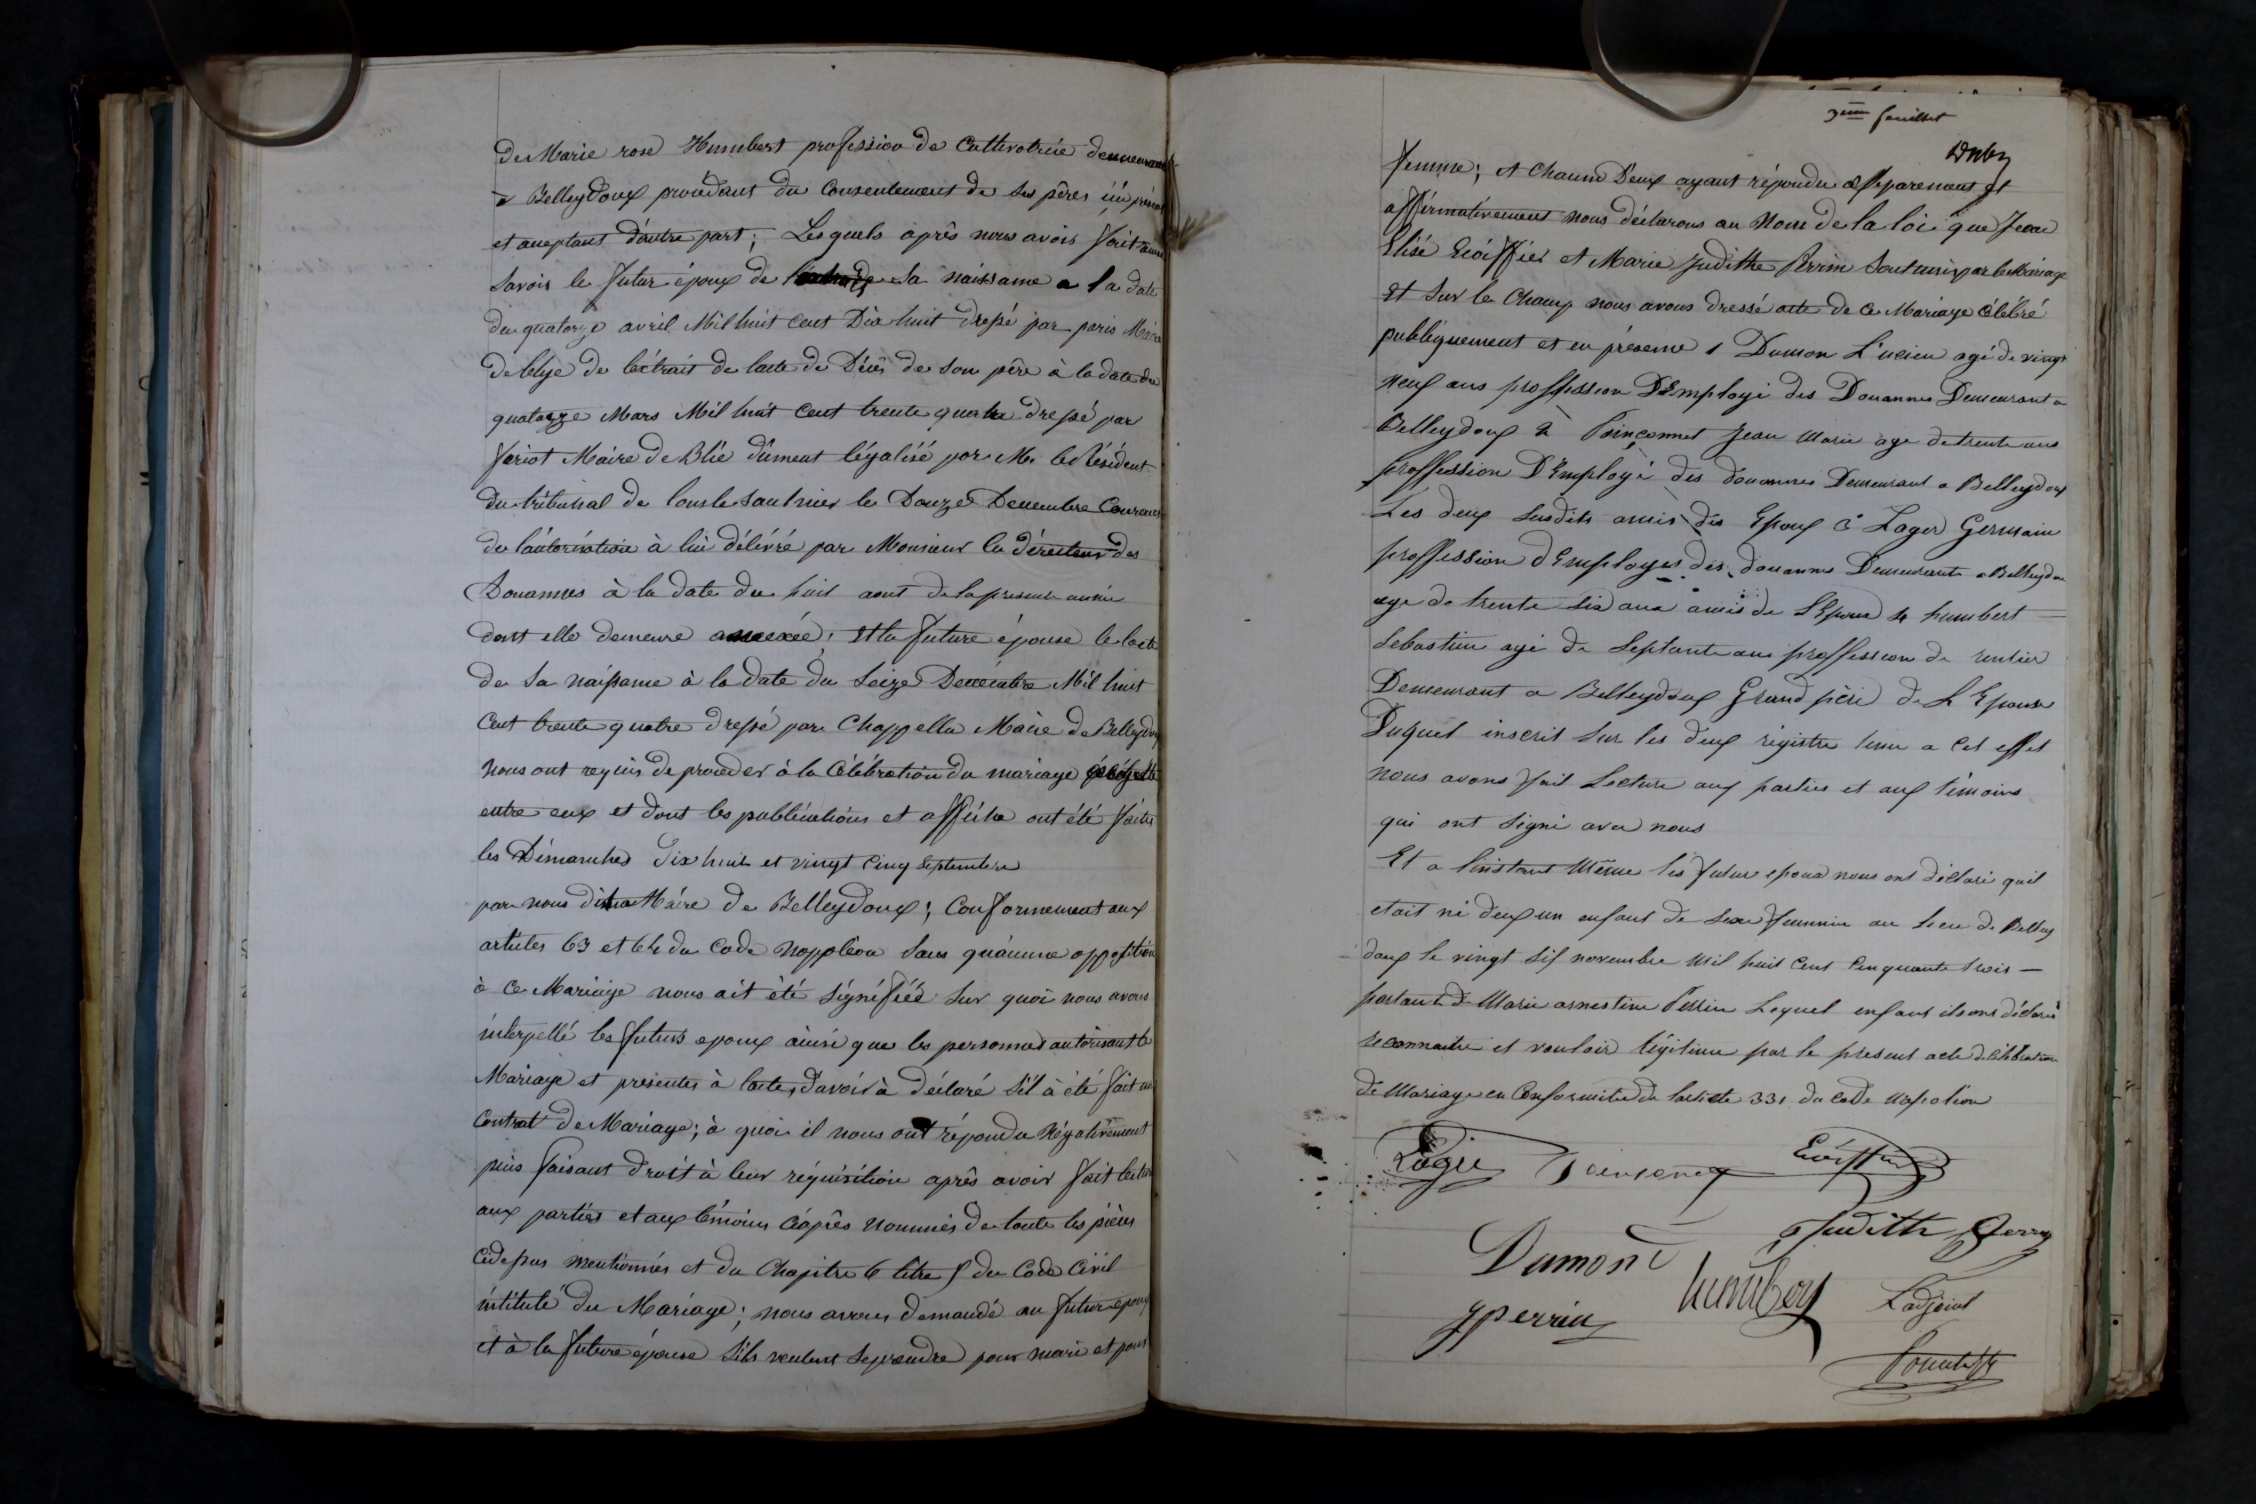 De Marie rose Humbert profession de Cultivatrice demeurant
a Belleydoux procédant du Consentement de ses pères ici présent
et aceptant d'autre part; Lesquels après nous avoir fait
Savoir le futur époux de sa naissance a la date
du quatorze avril Mil huit Cent Dix huit dressé par paris Maire
de blye de léxtrait de lacte de Décès de son père à la date du
quatorze Mars Mil huit Cent trente quatre dressé par
Maire de Blie dûment légalisé par Mr. le Président
du tribunal de Lons le Saulnier le Douze Decembre Courant
de lautorisation à lui délivré par Monsieur le directeur des
Douannes à la date du huit aout de la presente année
dont elle demeure annexée; Et la future épouse le lacte
de Sa naissance à la date du Seize Decembre Mil huit
Cent trente quatre dressé par Chappella Maire de Belleydoux
Nous ont requis de proceder à la Célébration du mariage
entre eux et dont les publications et affiche ont été faites
les Dimanches Dix huit et vingt Cinq Septembre
par nous dit Maire de Belleydoux; Conformement aux
articles 63 et 64 du Code Nappoléon Sans quaucune opposition
à Ce Mariage nous ait été Signifiée Sur quoi nous avons
interpellé les futurs epoux ainsi que les personnes autorisant le
Mariage et presentes à lacte, davoir à déclaré S'il à été fait un
Contrat de Mariage; à quoi il nous ont répondu Négativement
puis faisant droit à leur réquisition après avoir fait lecture
aux parties et aux témoins Ciaprès nommés de toute les pièces
Cidessus mentionnées et du Chapitre 6 titre 5 du Code Civil
intitulé du Mariage; nous avons demandé au futur époux
et à la future épouse S'ils veulent Se prendre pour mari et pour
feuillet
femme; et Chacun D'eux ayant répondu Separement et
affirmativement nous déclarons au Nom de la loi que Jean
Elisé Ecoiffier et Marie Judithe Perrin Sont unis par le Mariage
Et Sur le Champ nous avons dressé acte de Ce Mariage Célébré
publiquement et en présence 1 Dumon Lucien agé de vingt
neuf ans proffession D'Employé des Douannes Demeurant a
Belleydoux 2 Poinçonnet Jean Marie age de trente ans
proffession D'Employé des douannes Demeurant a Belleydoux
Les deux Susdits amis des Epoux 3 Lager Germain
proffession d'Employes des douannes Demeurant a Belleydoux
age de trente Six ans amis de L'Epoux 4 humbert
Sebastien agé de Septante ans proffession de rentier
Demeurant a Belleydoux Grand père de L'Epouse
Duquel inscrit Sur les deux régistre tenu a Cet effet
nous avons fait Lecture aux parties et aux témoins
qui ont Signé avec nous
Et a linstant Même les futur epoux nous ont déclaré quil
etait né deux un enfant de Sexe feminin au lieu de Belley
doux le vingt Six novembre Mil huit Cent Cinquante trois —
portant de Marie arnestine Perrin Lequel enfant ils ont déclaré
reconnaitre et vouloir légitimé par le present acte de Célébration
de Mariage en Conformité de larticle 331 du Code Napoléon
Ecoiffier
Judith Perrin
Dumont
humbert
L'adjoint
J Perrin